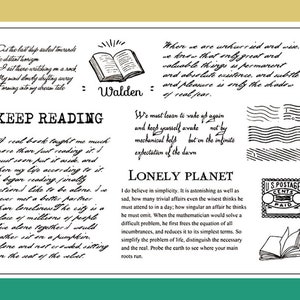 As the last ship sailed towards
the distant horizon
I sat there watching on a rock
My mind slowly drifting away
Forming into my dream tale
Walden
When we are unhurried and wise,
we know that only great and
valuable things is permanent
and absolute existence, and subtle
and pleasure is only the shadow
of real par.
KEEP READING
A real book taught me much
more than just reading it. I
must soon put it
my life according to it.
I began reading
I like to be alone. I
never met a better partner
than loneliness. The city is a
place of millions of people
live alone together. I would
rather sit on a pumpkin,
alone and not crowded, sitting
on the seat of the velvet.
We must learn to wake up again
and keep yourself awake not by
mechanical help but in the infinite
expectation of the dawn
LONELY PLANET
I do believe in simplicity. It is astonishing as well as
sad, how many trivial affairs even the wisest thinks he
must attend to in a day; how singular an affair he thinks
he must omit. When the mathematician would solve a
difficult problem, he first frees the equation of all
incumbrances, and reduces it to its simplest terms. So
simplify the problem of life, distinguish the necessary
and the real. Probe the earth to see where your main
roots run.
U.S. POSTAGE
PAID